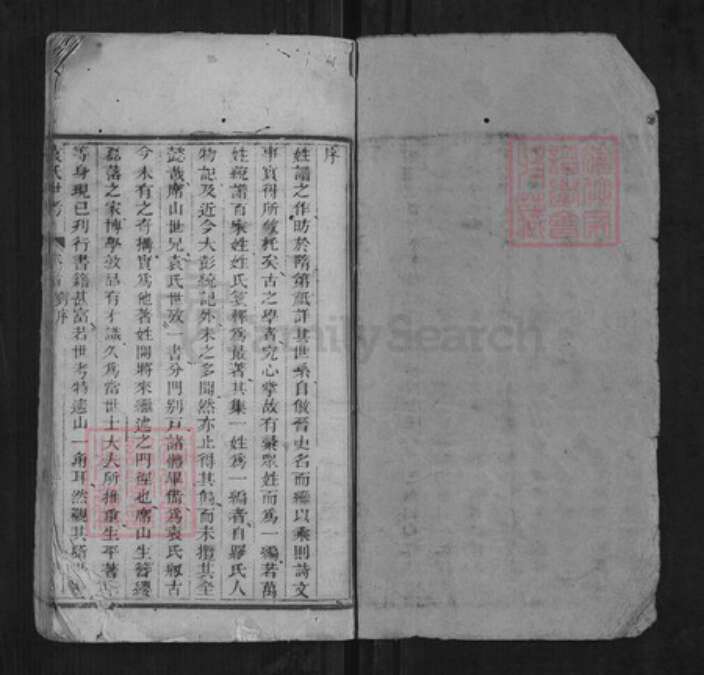 序
姓譜之作昉於隋第祇詳其世系自倣晉史名而繼以乘則詩文
事實得所敘托矣古之學者究心掌故有彙眾姓而為一編若萬
姓統譜百家姓姓氏箋釋為最著其集一姓為一編者自繆氏人
物記及近今大彭統記外未之多聞然亦止得其偏而未攬其全
懿哉席山世兄袁氏世攷一書分門別戶諸體畢備為袁氏叙古
今未有之奇搆實為他著姓開將來繼述之門徑也席山生簪纓
磊落之家博學敦品有才識久為當世士大夫所推重生平著
等身現已刊行書籍甚富若世考特遠山一角耳然觀其
袁氏世考
劉序
FamilySearch